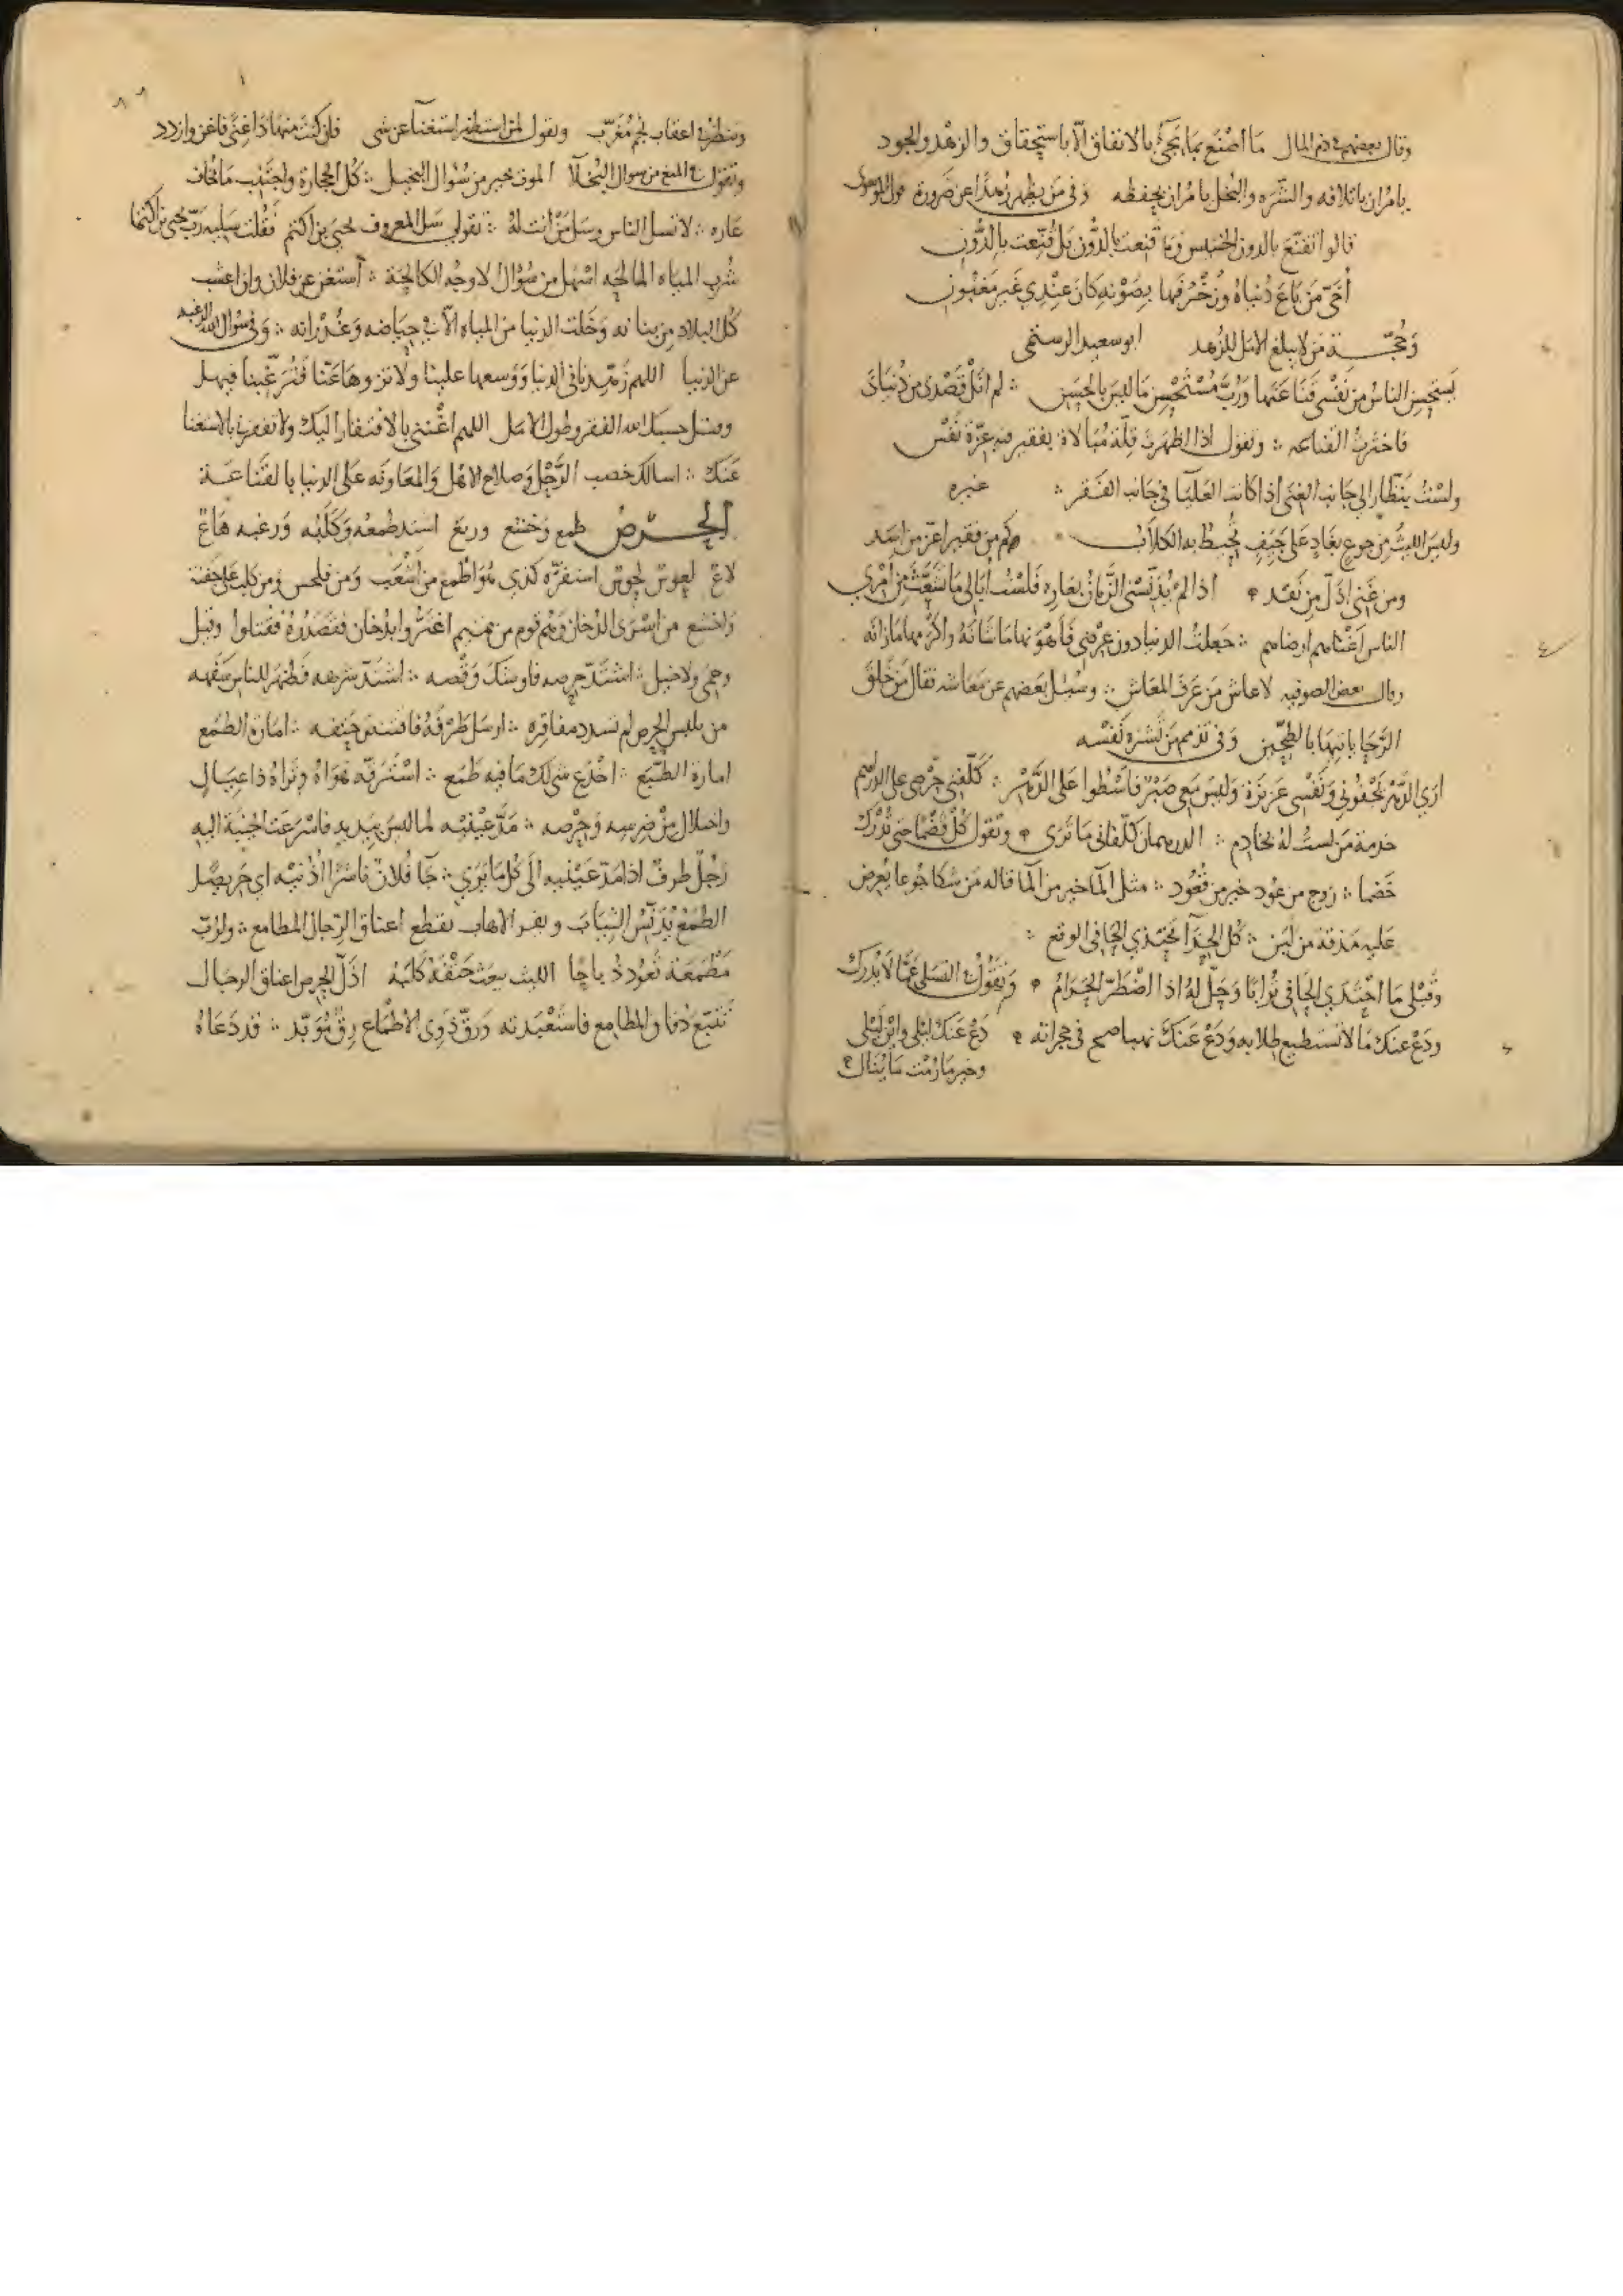 وقال بعضهم في ذم المال ما اصنع بما يجيء بالاتفاق الا باستحقاق والزهد والجود
يامران باتلافه والشره والبخل يامران بحفظه وفي من يظهر زهدا عن ضرورة
قالوا تقنع بالدون الخسيس وما قنعت بالدون بل قنعت بالدون
من باع دنياه وزخرفها بصونه كان عندي غير مغبون
من لا يبلغ الامل للزهد ابو سعيد الرستمي
يستحسن الناس من نفسي قناعتها ورب مستحسن ما ليس بالحسن لم انل قصدى من دنياى
فاخترت القناعه وتقول اذا اظهرت قلة مبالاة بفقير فيه عزة نفس
ولست بنظار الى جانب الغنى اذا كانت العليا في جانب الفقر غيره
وليس الليث من جوع بغاد على جيف تحيط به الكلاب كم من فقير اعز من اسد
ومن غني اذل من نقد اذا لم يدنسني الزمان بعاره فلست ابالي ما تشعث من امري
الناس اغناهم ارضاهم جعلت الدنيا دون عرضي فاهونها ما شانه واكرمها ما زانه
وقال بعض الصوفيه لا عاش من عرف المعاش وسئل بعضهم عن معاشه فقال من خلق
الرحا ياتيها بالطحين وفي تذمم من تشره نفسه
ارى الدهر يجفوني ونفسي عزيزة وليس معي صبر فاسطوا على الدهر كلفني حرصي على الدراهم
خدمة من لست له بخادم الدرهمان كلفاني ما ترى وتقول كل قضما حتى تدرك
خضما زوج من عود خير من قعود مثل الما خير من الما قاله من شكا جوعا يعرض
عليه مذقة من لبن كل الحذا يحتذي الحافي الوقع
وقبلي ما احتذى الحافي ترابا وحل له اذا اضطر الحرام وتقول في التسلي عما لا يدرك
ودع عنك ما لا تستطيع طلابه ودع عنك نهبا صيح في حجراته دع عنك ليلى وابن ليلى
وخير ما رمت ما ينال
وينظر في اعقاب نجم مغرب وتقول لمن استظهر استغنآ عن شي فان كنت عنها ذا غنى فاغن وازدد
وتقول في المنع من سوال البخلآ الموت خير من سؤال البخيل كل الحجارة واجتنب ما تخاف
عاره لا تسل الناس وسل من انت له تقول سل المعروف يحيى بن اكثم فقلت سليه رب يحيى بن اكثما
شرب المياه المالحه اسهل من سؤال الاوجه الكالحة استغن عن فلان وان اعشب
كل البلاد من بنانه وخلت الدنيا من المياه الا في حياضه وغدرانه وفي سؤال الله الرغبه
عن الدنيا اللهم زهدنا في الدنيا ووسعها علينا ولا تزوها عنا فترغبنا فيها
حسبك الفقر وطول الامل اللهم اغنني بالافتقار اليك ولا تفقرني بالاستغنا
عنك اسالك خصب الرحل وصلاح الاهل والمعاونه على الدنيا بالقناعة
الحرص طمع وخشع ورتع اشتد طمعه وكلبه ورغبه هاع
لاع لعوس لحوس هو اطمع من اشعب ومن فلحس ومن كلب على جيفة
واخشع من اسرى الدخان وهم قوم من تميم اغتروا بدخان فقصدره فقتلوا وقيل
وحمى ولا حبل اشتد حرصه فاوشك وقصه اشتد شرهه فظهر للناس سفهه
من يلبس الحرص لم تسدد مفاقره ارسل طرفه حتفه امارة الطمع
امارة الطبع اخدع شي لك ما فيه طمع استرقه هواه وتراه ذا عيال
من ضرسه وحرصه مد عينيه لما ليس بيديه فاسرعت الخيبة اليه
رجل طرف اذا مد عينيه الى كل ما يرى جآ فلان ناشرا اذنيه اي حريصا
الطمع يدنس الثياب الاهاب تقطع اعناق الرجال المطامع ولرب
مطمعة تعود ذباحا الليث يبعث حتفه كلبه اذل الحرص اعناق الرجال
والمطامع فاستعبدته ورق ذوى الاطماع رق مؤبد قد دعاه